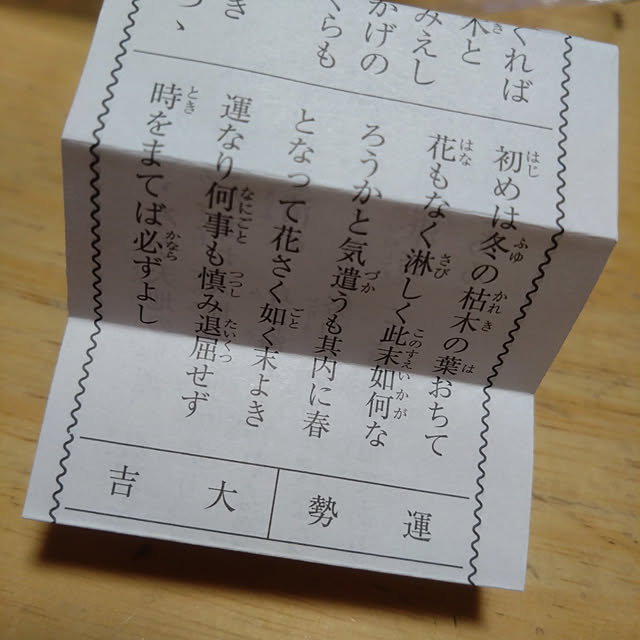 くれば
木と
みえし
かげの
くらも
き
つゝ
初めは冬の枯木の葉おちて
花もなく淋しく此末如何な
ろうかと気遣うも其内に春
となって花さく如く末よき
運なり何事も慎み退屈せず
時をまてば必ずよし
運勢
大吉